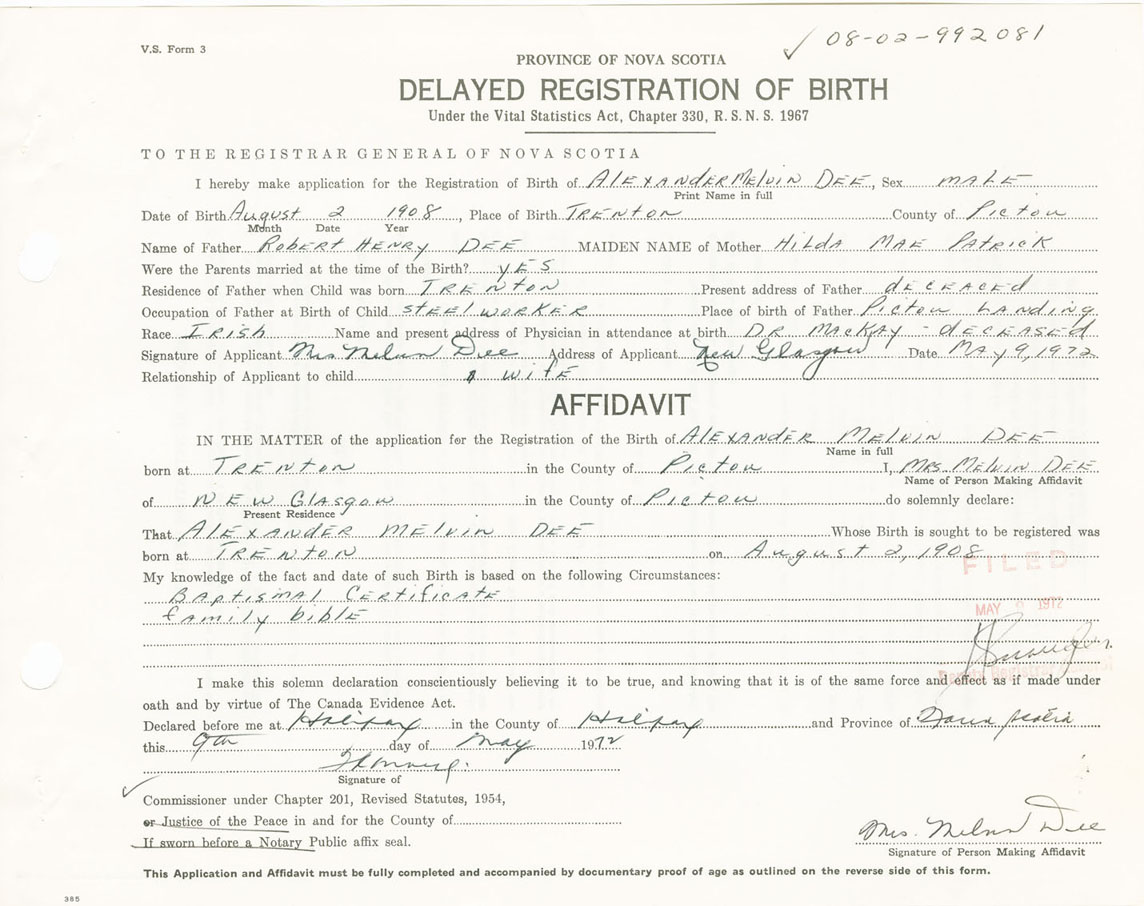 V.S. Form 3
✓ 08-02-992081
PROVINCE OF NOVA SCOTIA
DELAYED REGISTRATION OF BIRTH
Under the Vital Statistics Act, Chapter 330, R. S. N. S. 1967
TO THE REGISTRAR GENERAL OF NOVA SCOTIA
I hereby make application for the Registration of Birth of ALEXANDER MELVIN DEE, Sex MALE
Print Name in full
Date of Birth August 2 1908, Place of Birth TRENTON County of Picton
Month Date Year
Name of Father ROBERT HENRY DEE MAIDEN NAME of Mother HILDA MAE PATRICK
Were the Parents married at the time of the Birth? YES
Residence of Father when Child was born TRENTON Present address of Father dECEACEd
Occupation of Father at Birth of Child STEEL WORKER Place of birth of Father PICTON LANding
Race IRISH Name and present address of Physician in attendance at birth DR MACKAY - dECEASEd
Signature of Applicant Mrs Melvin Dee Address of Applicant New Glasgow Date MAY 9, 1972
Relationship of Applicant to child wifE
AFFIDAVIT
IN THE MATTER of the application for the Registration of the Birth of ALEXANDER MELVIN DEE
Name in full
born at TRENTON in the County of PICTON I, MRS. MELVIN DEE
Name of Person Making Affidavit
of NEW GLASgow in the County of PICTON do solemnly declare:
Present Residence
That ALEXANDER MELVIN DEE Whose Birth is sought to be registered was
born at TRENTON on August 2, 1908
My knowledge of the fact and date of such Birth is based on the following Circumstances:
BAPTISMAL CERTIFICATE
family bible
FILED
MAY 1972
Deputy Registrar General
I make this solemn declaration conscientiously believing it to be true, and knowing that it is of the same force and effect as if made under
oath and by virtue of The Canada Evidence Act.
Declared before me at Halifax in the County of Halifax and Province of Nova Scotia
this 9th day of May 1972
Signature of
✓
Commissioner under Chapter 201, Revised Statutes, 1954,
or Justice of the Peace in and for the County of
If sworn before a Notary Public affix seal.
Mrs. Melvin Dee
Signature of Person Making Affidavit
This Application and Affidavit must be fully completed and accompanied by documentary proof of age as outlined on the reverse side of this form.
385